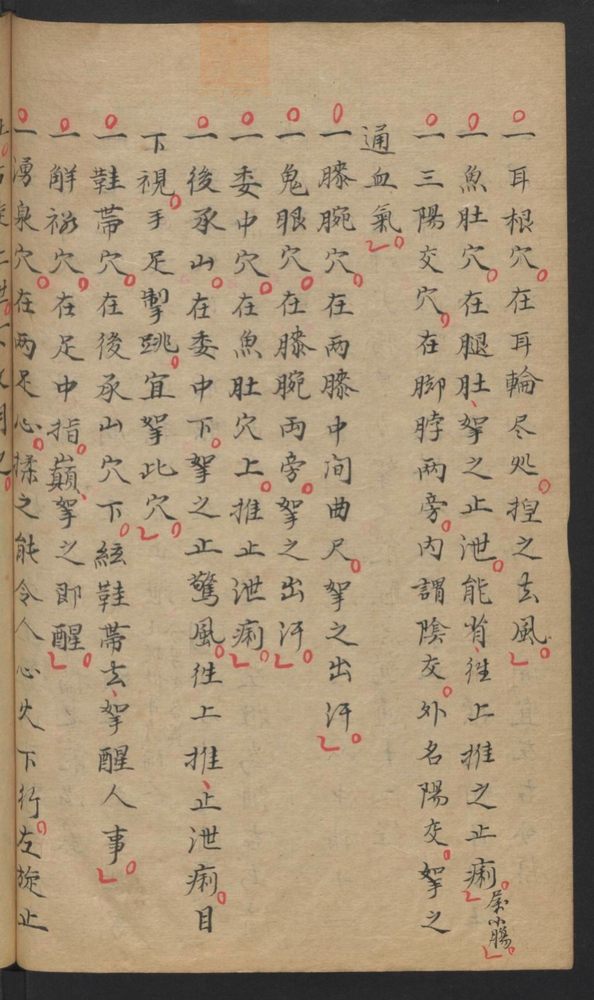 一耳根穴。在耳輪尽処。揑之去風。
一魚肚穴。在腿肚、拏之止泄。能省、往上推之止痢。屬小腸。
一三陽交穴。在脚脖两旁。内謂陰交。外名陽交。拏之
通血氣。
一膝腕穴。在两膝中间曲尺。拏之出汗。
一鬼眼穴。在膝腕两旁。拏之出汗。
一委中穴。在魚肚穴上。推止泄痢。
一後承山。在委中下。拏之止驚風。往上推、止泄痢。目
下視。手足掣跳。宜拏此穴。
一鞋帶穴。在後承山穴下。絃鞋帶去、拏醒人事。
一解谿穴。在足中指。巔、拏之即醒。
一湧泉穴。在两足心。揉之能令人心火下行。左旋止